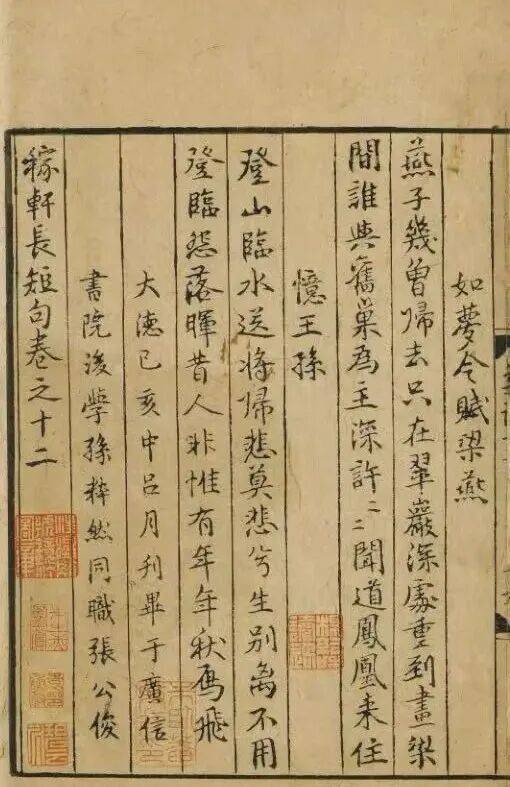 如夢令賦梁燕
燕子幾曾歸去只在翠巖深處重到畫梁
間誰與舊巢爲主深許〻〻聞道鳳凰來住
憶王孫
登山臨水送將歸悲莫悲兮生別离不用
登臨怨落暉昔人非惟有年年秋鴈飛
大德己亥中呂月刊畢于廣信
書院後學孫粹然同職張公俊
稼軒長短句卷之十二